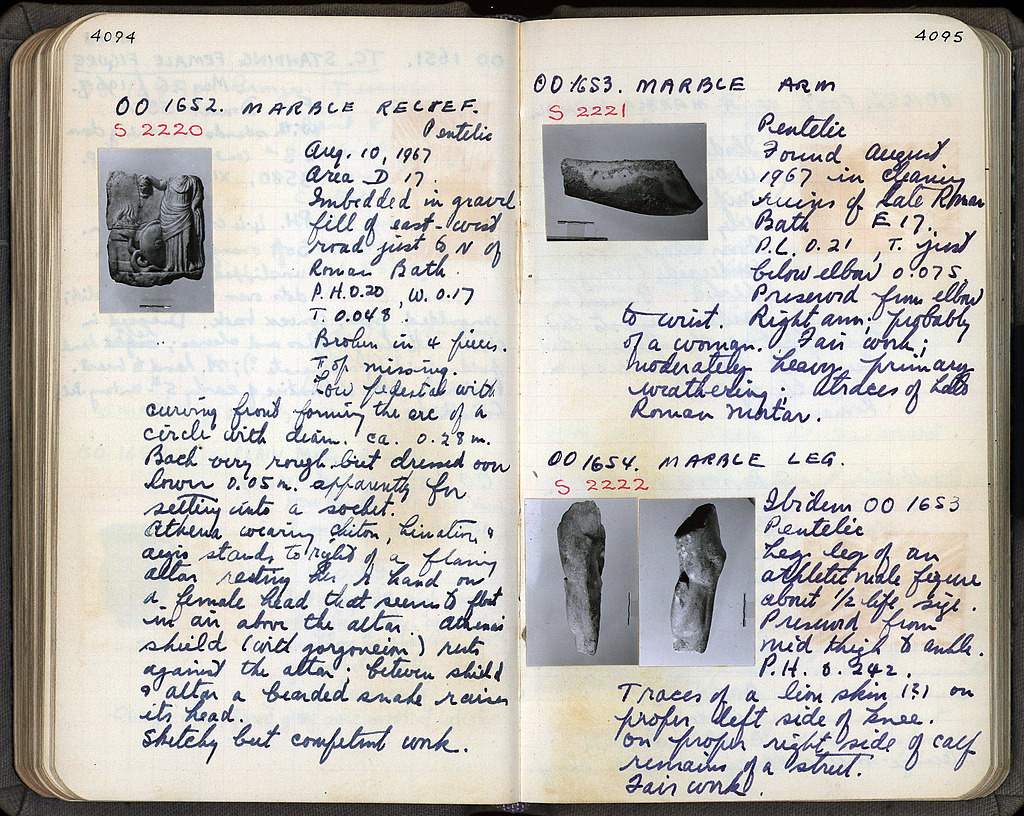 4094
OO 1652. MARBLE RELIEF.
S 2220
Pentelic
Aug. 10, 1967
Area D 17.
Imbedded in gravel
fill of east-west
road just to N of
Roman Bath.
P.H. 0.20, W. 0.17
T. 0.048.
Broken in 4 pieces.
Top missing.
Low pedestal with
curving front forming the arc of a
circle with diam. ca. 0.28 m.
Back very rough but dressed over
lower 0.05 m. apparently for
setting into a socket.
Athena wearing chiton, himation &
aegis stands to right of a flaming
altar resting her R hand on
a female head that seems to float
in air above the altar. Athena's
shield (with gorgoneion) rests
against the altar; between shield
& altar a bearded snake raises
its head.
Sketchy but competent work.
4095
OO 1653. MARBLE ARM
S 2221
Pentelic
Found August
1967 in cleaning
ruins of Late Roman
Bath E 17.
P.L. 0.21, T. just
below elbow 0.075.
Preserved from elbow
to wrist. Right arm, probably
of a woman. Fair work;
moderately heavy primary
weathering; traces of Late
Roman mortar.
OO 1654. MARBLE LEG.
S 2222
Ibidem OO 1653
Pentelic
leg of an
athletic male figure
about 1/2 life size.
Preserved from
mid thigh to ankle.
P.H. 0.242.
Traces of a lion skin (?) on
proper left side of knee.
On proper right side of calf
remains of a strut.
Fair work.